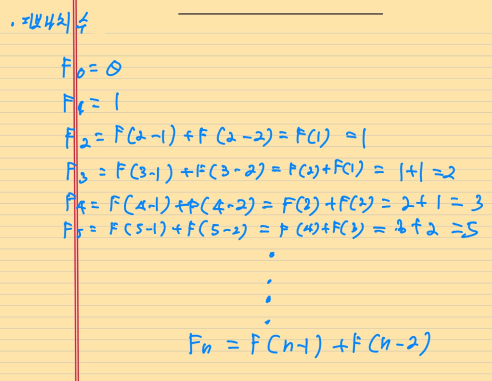 . 피보나치 수
F0 = 0
F1 = 1
F2 = F(2-1) + F(2-2) = F(1) = 1
F3 = F(3-1) + F(3-2) = F(2) + F(1) = 1+1 = 2
F4 = F(4-1) + F(4-2) = F(3) + F(2) = 2+1 = 3
F5 = F(5-1) + F(5-2) = F(4) + F(3) = 3+2 = 5
Fn = F(n-1) + F(n-2)